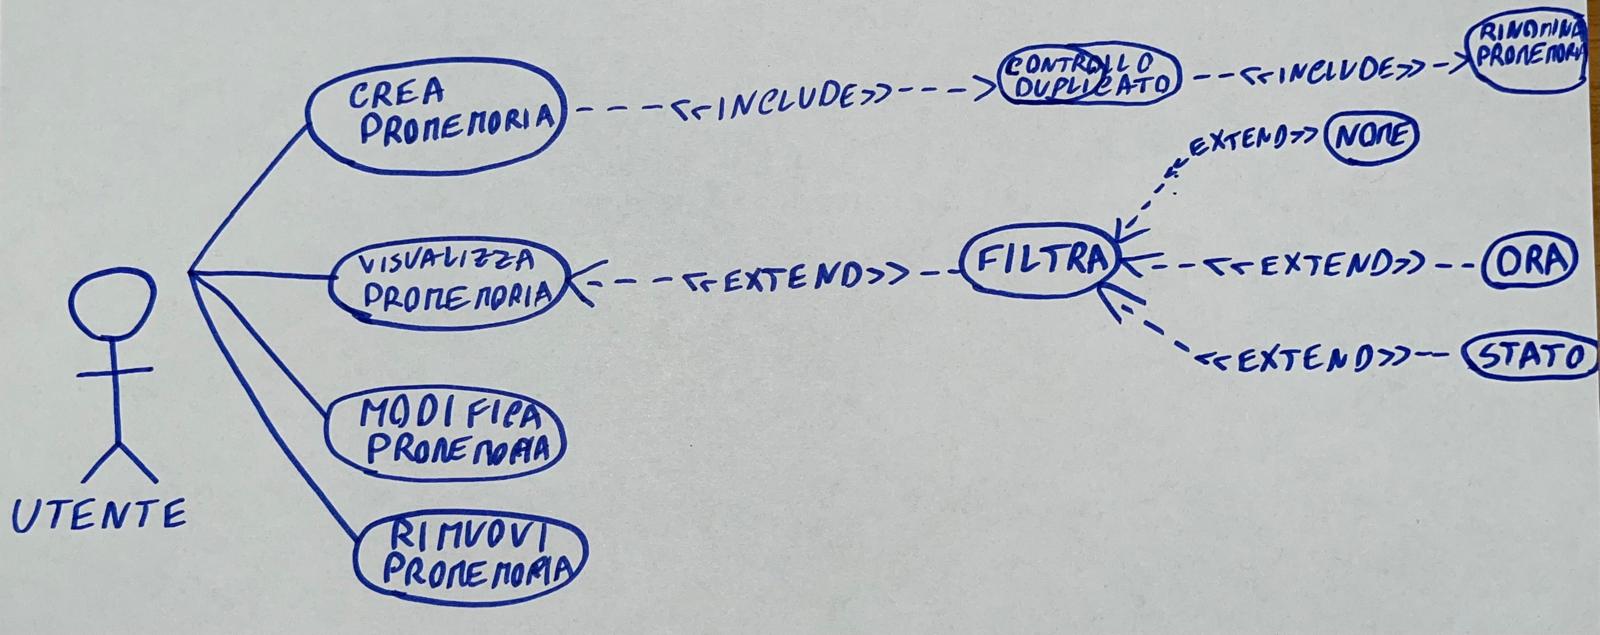 CREA
PROMEMORIA
<<INCLUDE>>
CONTROLLO
DUPLICATO
<<INCLUDE>>
RINOMINA
PROMEMORIA
EXTEND>>
NOME
VISUALIZZA
PROMEMORIA
<<EXTEND>>
FILTRA
<<EXTEND>>
ORA
<<EXTEND>>
STATO
MODIFICA
PROMEMORIA
UTENTE
RIMUOVI
PROMEMORIA